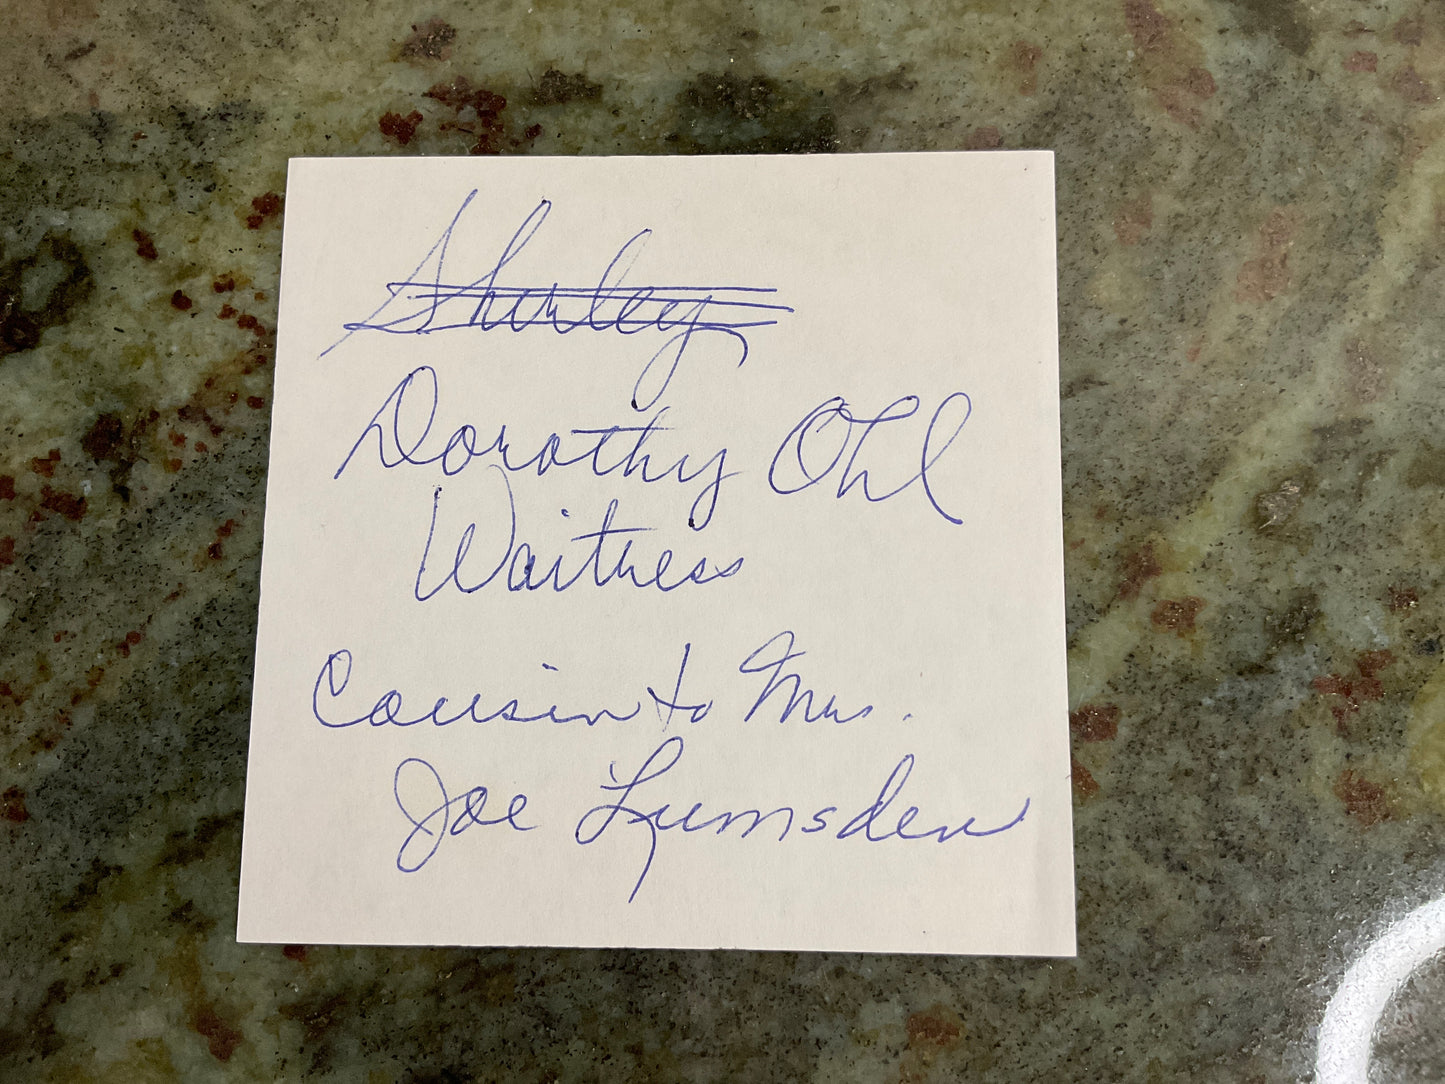 Shirley
Dorothy Ohl
Waitress
Cousin to Mrs.
Joe Lumsden